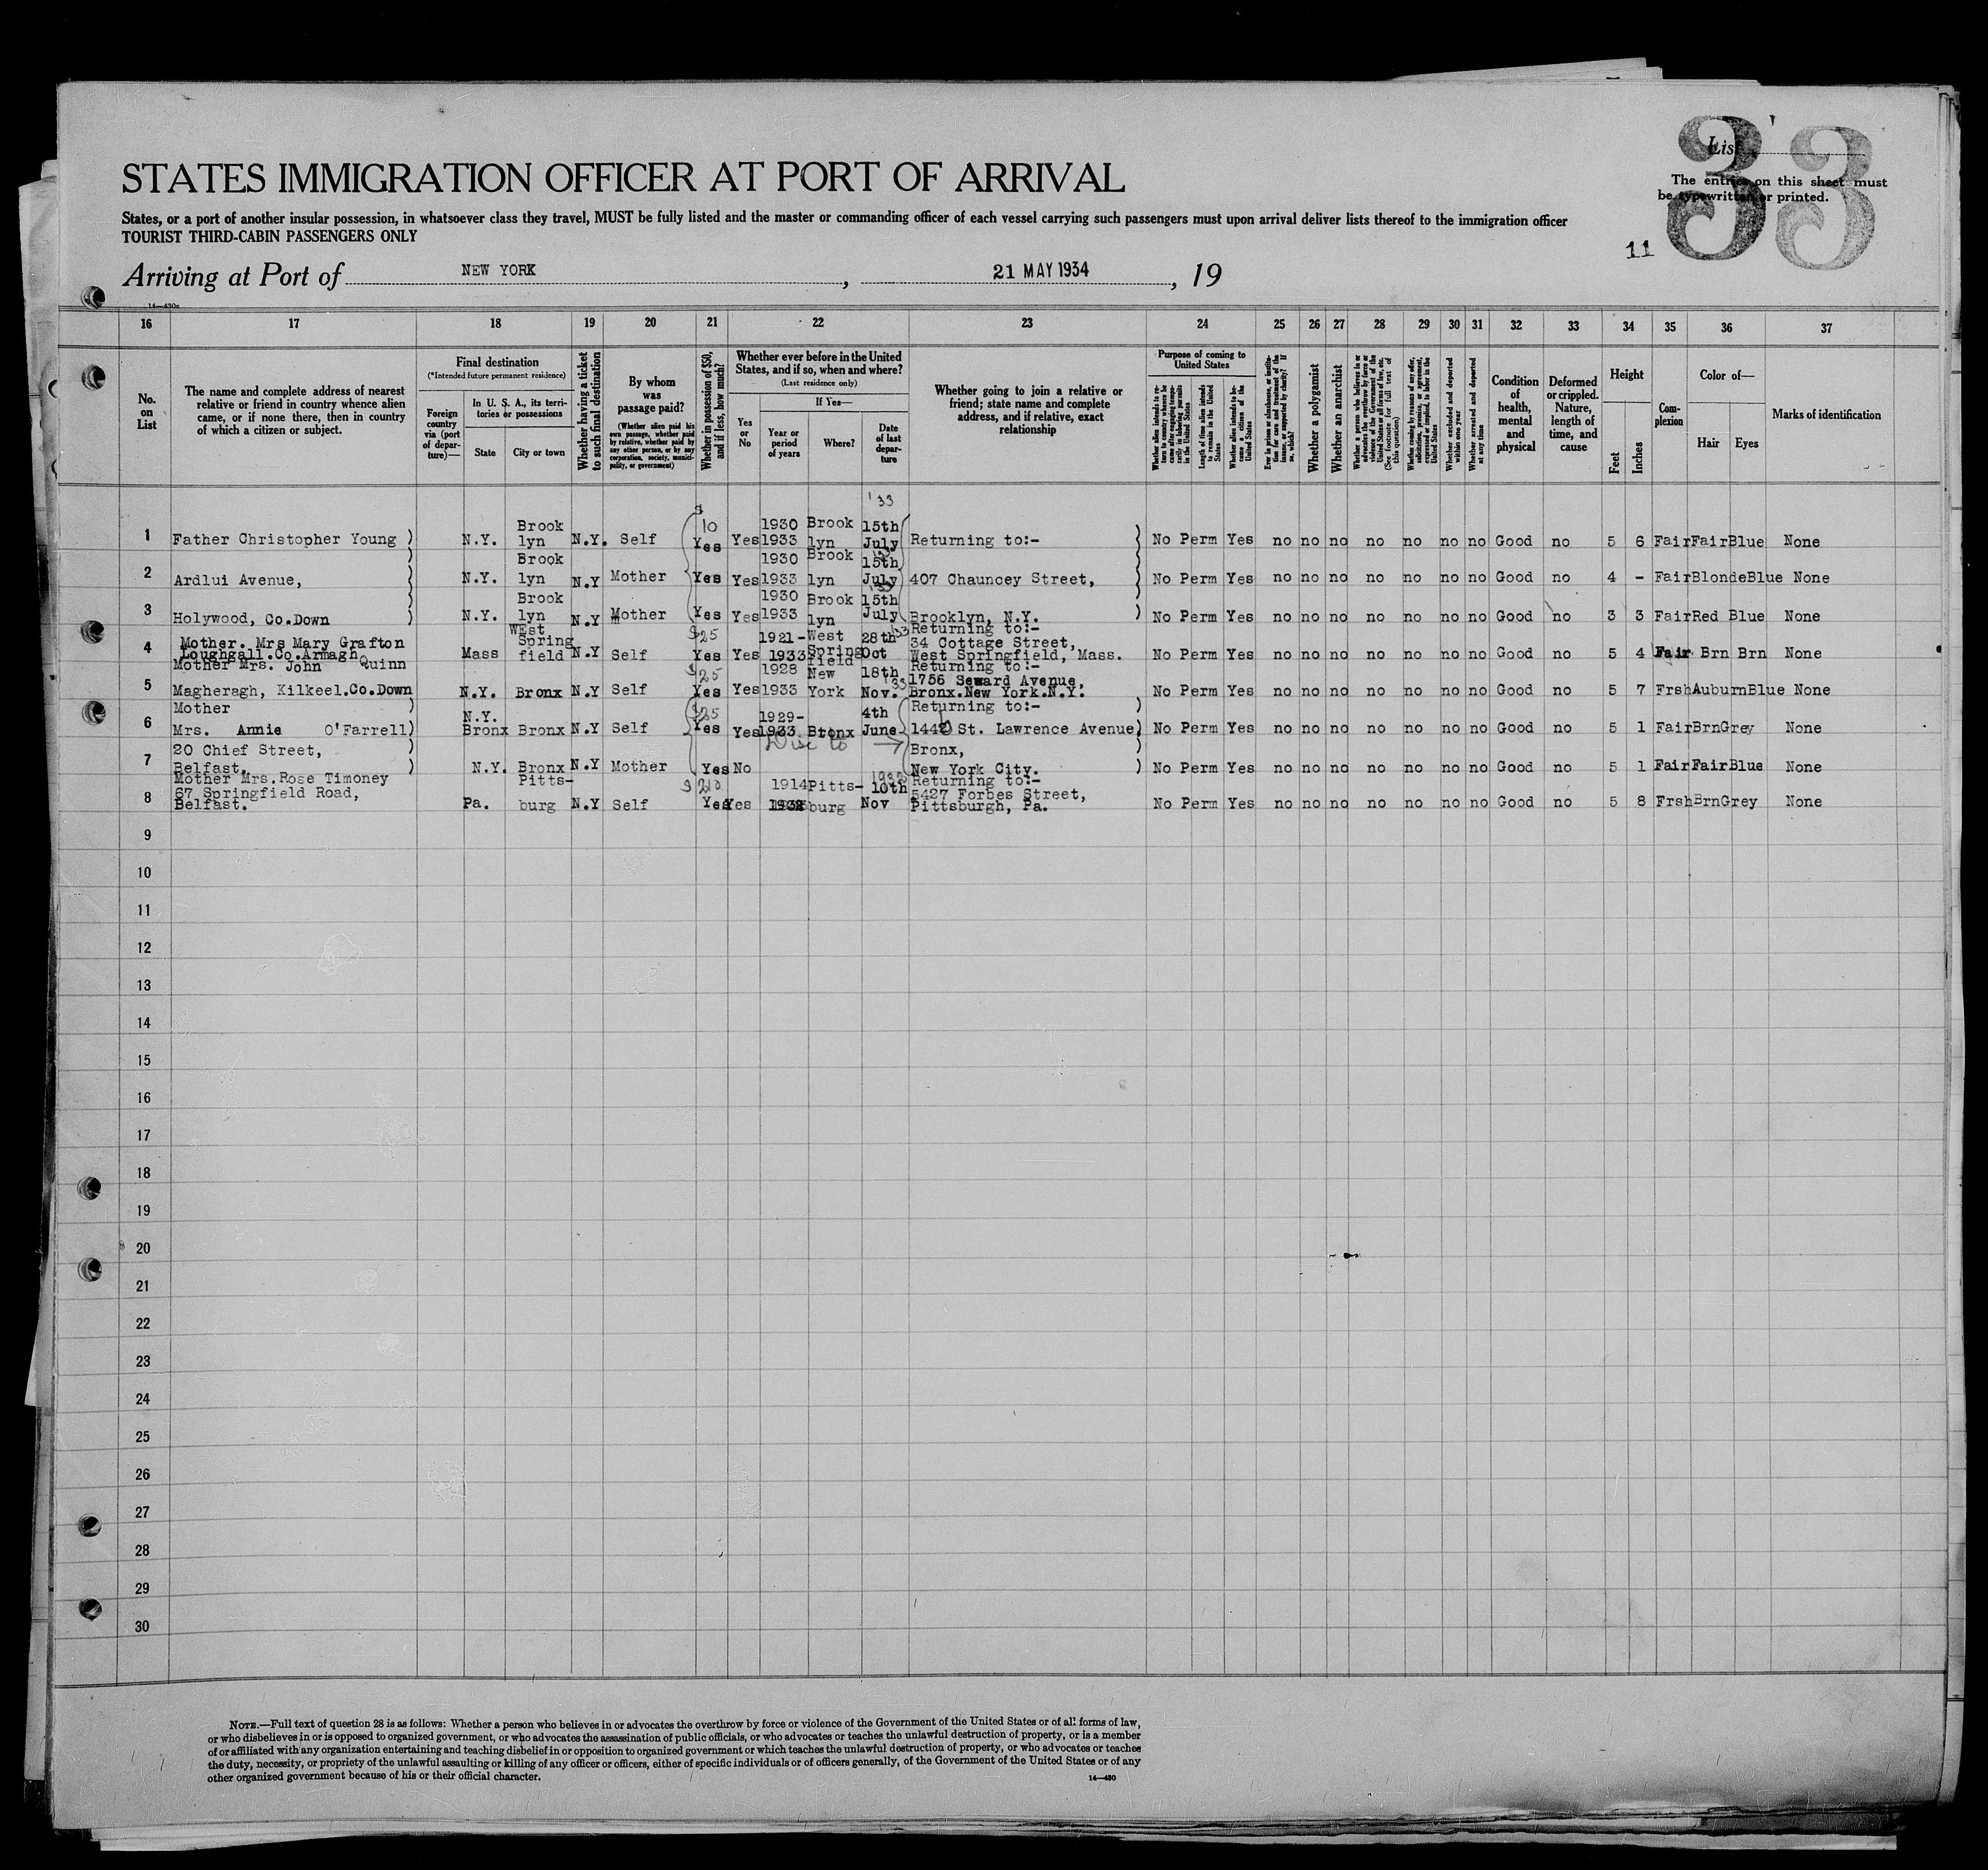 33
List
The entries on this sheet must
be typewritten or printed.
11
STATES IMMIGRATION OFFICER AT PORT OF ARRIVAL
States, or a port of another insular possession, in whatsoever class they travel, MUST be fully listed and the master or commanding officer of each vessel carrying such passengers must upon arrival deliver lists thereof to the immigration officer
TOURIST THIRD-CABIN PASSENGERS ONLY
Arriving at Port of NEW YORK, 21 MAY 1934, 19
16 17 18 19 20 21 22 23 24 25 26 27 28 29 30 31 32 33 34 35 36 37
No. on List
The name and complete address of nearest relative or friend in country whence alien came, or if none there, then in country of which a citizen or subject.
Final destination
(*Intended future permanent residence)
Foreign country via (port of departure)—
In U. S. A., its territories or possessions
State
City or town
Whether having a ticket to such final destination
By whom was passage paid?
(Whether alien paid his own passage, whether paid by relative, whether paid by any other person, or by any corporation, society, municipality, or government)
Whether in possession of $50, and if less, how much?
Whether ever before in the United States, and if so, when and where?
(Last residence only)
Yes or No
If Yes—
Year or period of years
Where?
Date of last departure
Whether going to join a relative or friend; state name and complete address, and if relative, exact relationship
Purpose of coming to United States
Whether alien intends to return to country whence he came after engaging temporarily in laboring pursuits in the United States
Length of time alien intends to remain in the United States
Whether alien intends to become a citizen of the United States
Ever in prison or almshouse, or institution for care and treatment of the insane, or supported by charity? If so, which?
Whether a polygamist
Whether an anarchist
Whether a person who believes in or advocates the overthrow by force or violence of the Government of the United States or all forms of law, etc. (See footnote for full text of this question)
Whether coming by reason of any offer, solicitation, promise, or agreement, expressed or implied, to labor in the United States
Whether excluded and deported within one year
Whether arrested and deported at any time
Condition of health, mental and physical
Deformed or crippled. Nature, length of time, and cause
Height
Feet
Inches
Complexion
Color of—
Hair
Eyes
Marks of identification
1 Father Christopher Young ) N.Y. Brook lyn N.Y. Self $10 Yes Yes 1930 1933 Brook lyn 15th July '33 Returning to:- ) No Perm Yes no no no no no no no Good no 5 6 Fair Fair Blue None
2 Ardlui Avenue, ) N.Y. Brook lyn N.Y Mother Yes Yes 1930 1933 Brook lyn 15th July 407 Chauncey Street, ) No Perm Yes no no no no no no no Good no 4 - Fair Blonde Blue None
3 Holywood, Co.Down ) N.Y. Brook lyn N.Y Mother Yes Yes 1930 1933 Brook lyn 15th July Brooklyn, N.Y. ) No Perm Yes no no no no no no no Good no 3 3 Fair Red Blue None
4 Mother. Mrs Mary Grafton Loughgall.Co.Armagh Mass West Spring field N.Y Self $25 Yes Yes 1921-1933 West Spring field 28th Oct '33 Returning to:- 34 Cottage Street, West Springfield, Mass. No Perm Yes no no no no no no no Good no 5 4 Fair Brn Brn None
5 Mother Mrs. John Quinn Magheragh, Kilkeel.Co.Down N.Y. Bronx N.Y Self $25 Yes Yes 1928 1933 New York 18th Nov. '33 Returning to:- 1756 Seward Avenue, Bronx.New York.N.Y. No Perm Yes no no no no no no no Good no 5 7 Frsh Auburn Blue None
6 Mother Mrs. Annie O'Farrell ) N.Y. Bronx Bronx N.Y Self $25 Yes Yes 1929-1933 Bronx 4th June Returning to:- 1442 St. Lawrence Avenue ) No Perm Yes no no no no no no no Good no 5 1 Fair Brn Grey None
7 20 Chief Street, Belfast. ) N.Y. Bronx N.Y Mother Yes No Bronx, New York City. ) No Perm Yes no no no no no no no Good no 5 1 Fair Fair Blue None
8 Mother Mrs.Rose Timoney 67 Springfield Road, Belfast. Pa. Pitts- burg N.Y Self Yes Yes 1914 Pitts- burg 10th Nov Returning to:- 5427 Forbes Street, Pittsburgh, Pa. No Perm Yes no no no no no no no Good no 5 8 Frsh Brn Grey None
9
10
11
12
13
14
15
16
17
18
19
20
21
22
23
24
25
26
27
28
29
30
NOTE.—Full text of question 28 is as follows: Whether a person who believes in or advocates the overthrow by force or violence of the Government of the United States or of all forms of law,
or who disbelieves in or is opposed to organized government, or who advocates the assassination of public officials, or who advocates or teaches the unlawful destruction of property, or is a member
of or affiliated with any organization entertaining and teaching disbelief in or opposition to organized government or which teaches the unlawful destruction of property, or who advocates or teaches
the duty, necessity, or propriety of the unlawful assaulting or killing of any officer or officers, either of specific individuals or of officers generally, of the Government of the United States or of any
other organized government because of his or their official character.
14—430